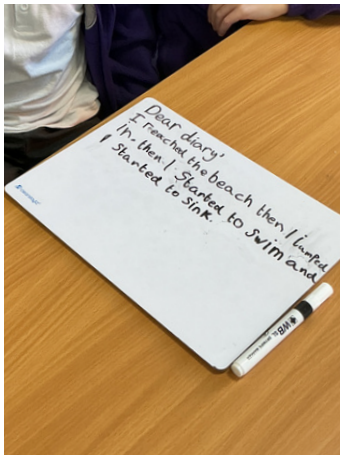 Dear diary,
I reached the beach then I jumped
in. then I started to swim and
I started to sink.
WB